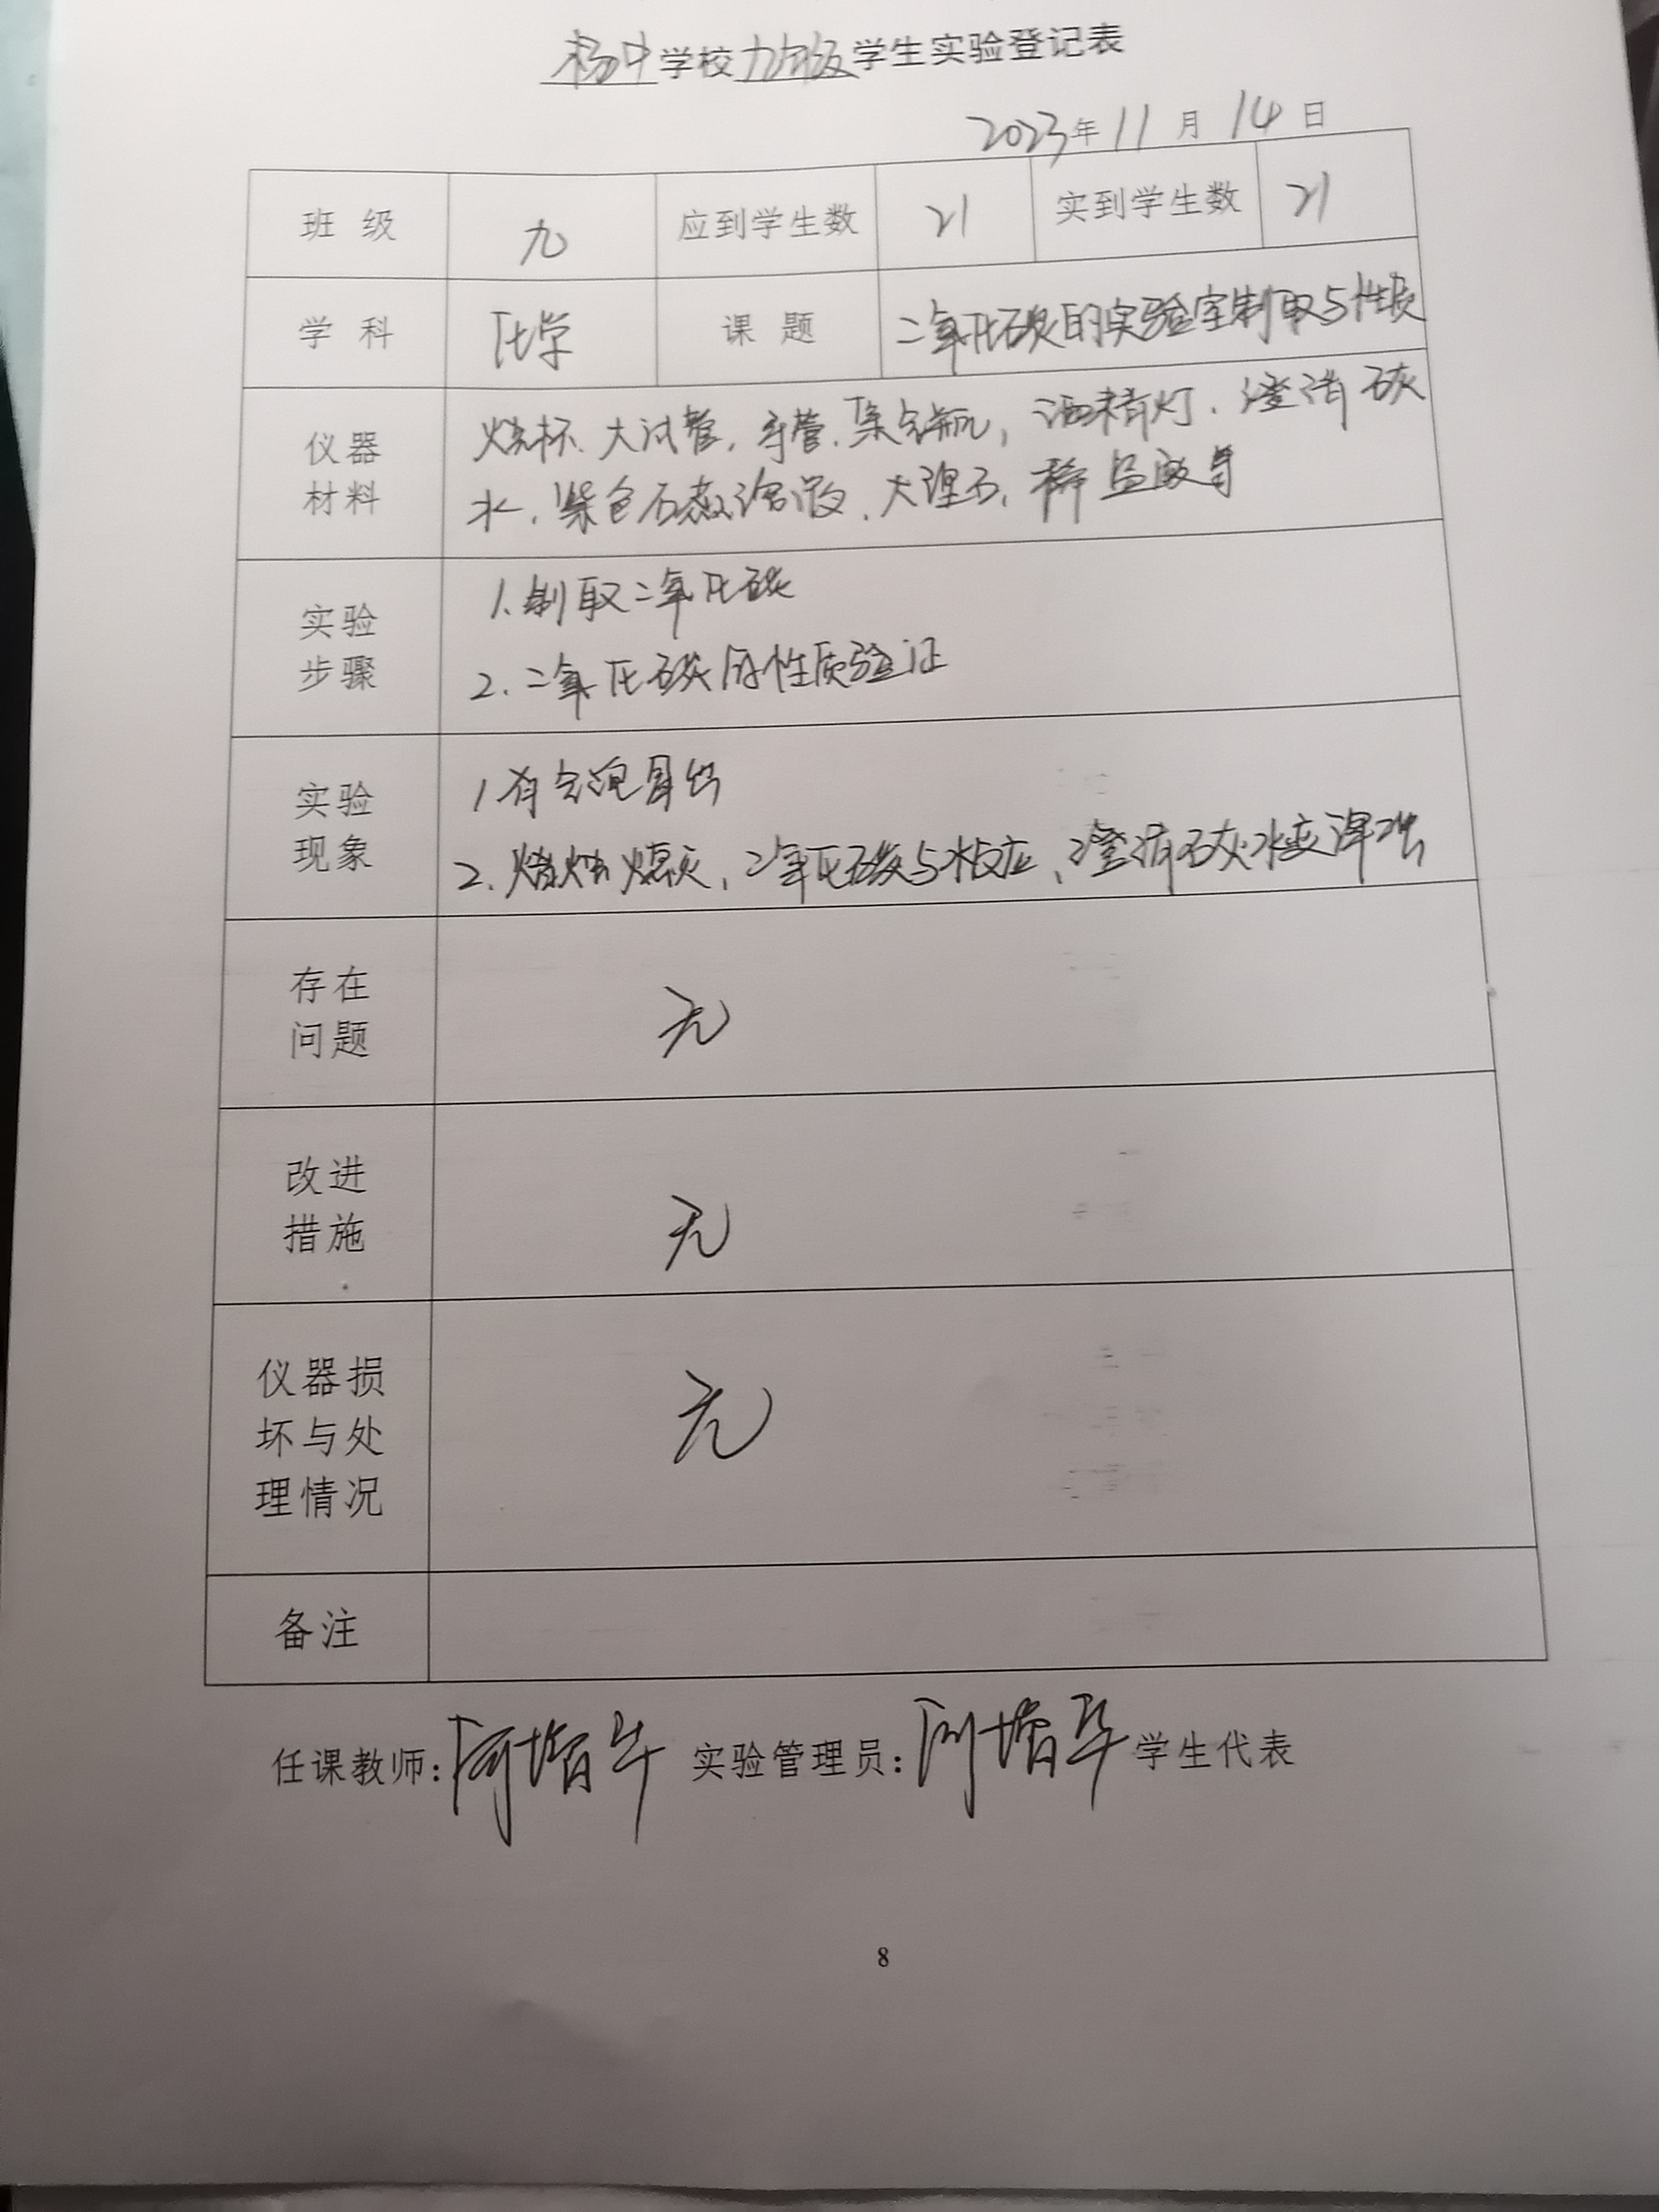 杨中学校九年级学生实验登记表
2023年11月14日
班 级 九 应到学生数 21 实到学生数 21
学 科 化学 课 题 二氧化碳的实验室制取与性质
仪器
材料
烧杯、大试管、导管、集气瓶、酒精灯、澄清石灰
水、紫色石蕊溶液、大理石、稀盐酸等
实验
步骤
1.制取二氧化碳
2.二氧化碳的性质验证
实验
现象
1.有气泡冒出
2.熄灭、二氧化碳与水反应、澄清石灰水变浑浊
存在
问题
无
改进
措施
无
仪器损
坏与处
理情况
无
备注
任课教师: 实验管理员: 学生代表
8